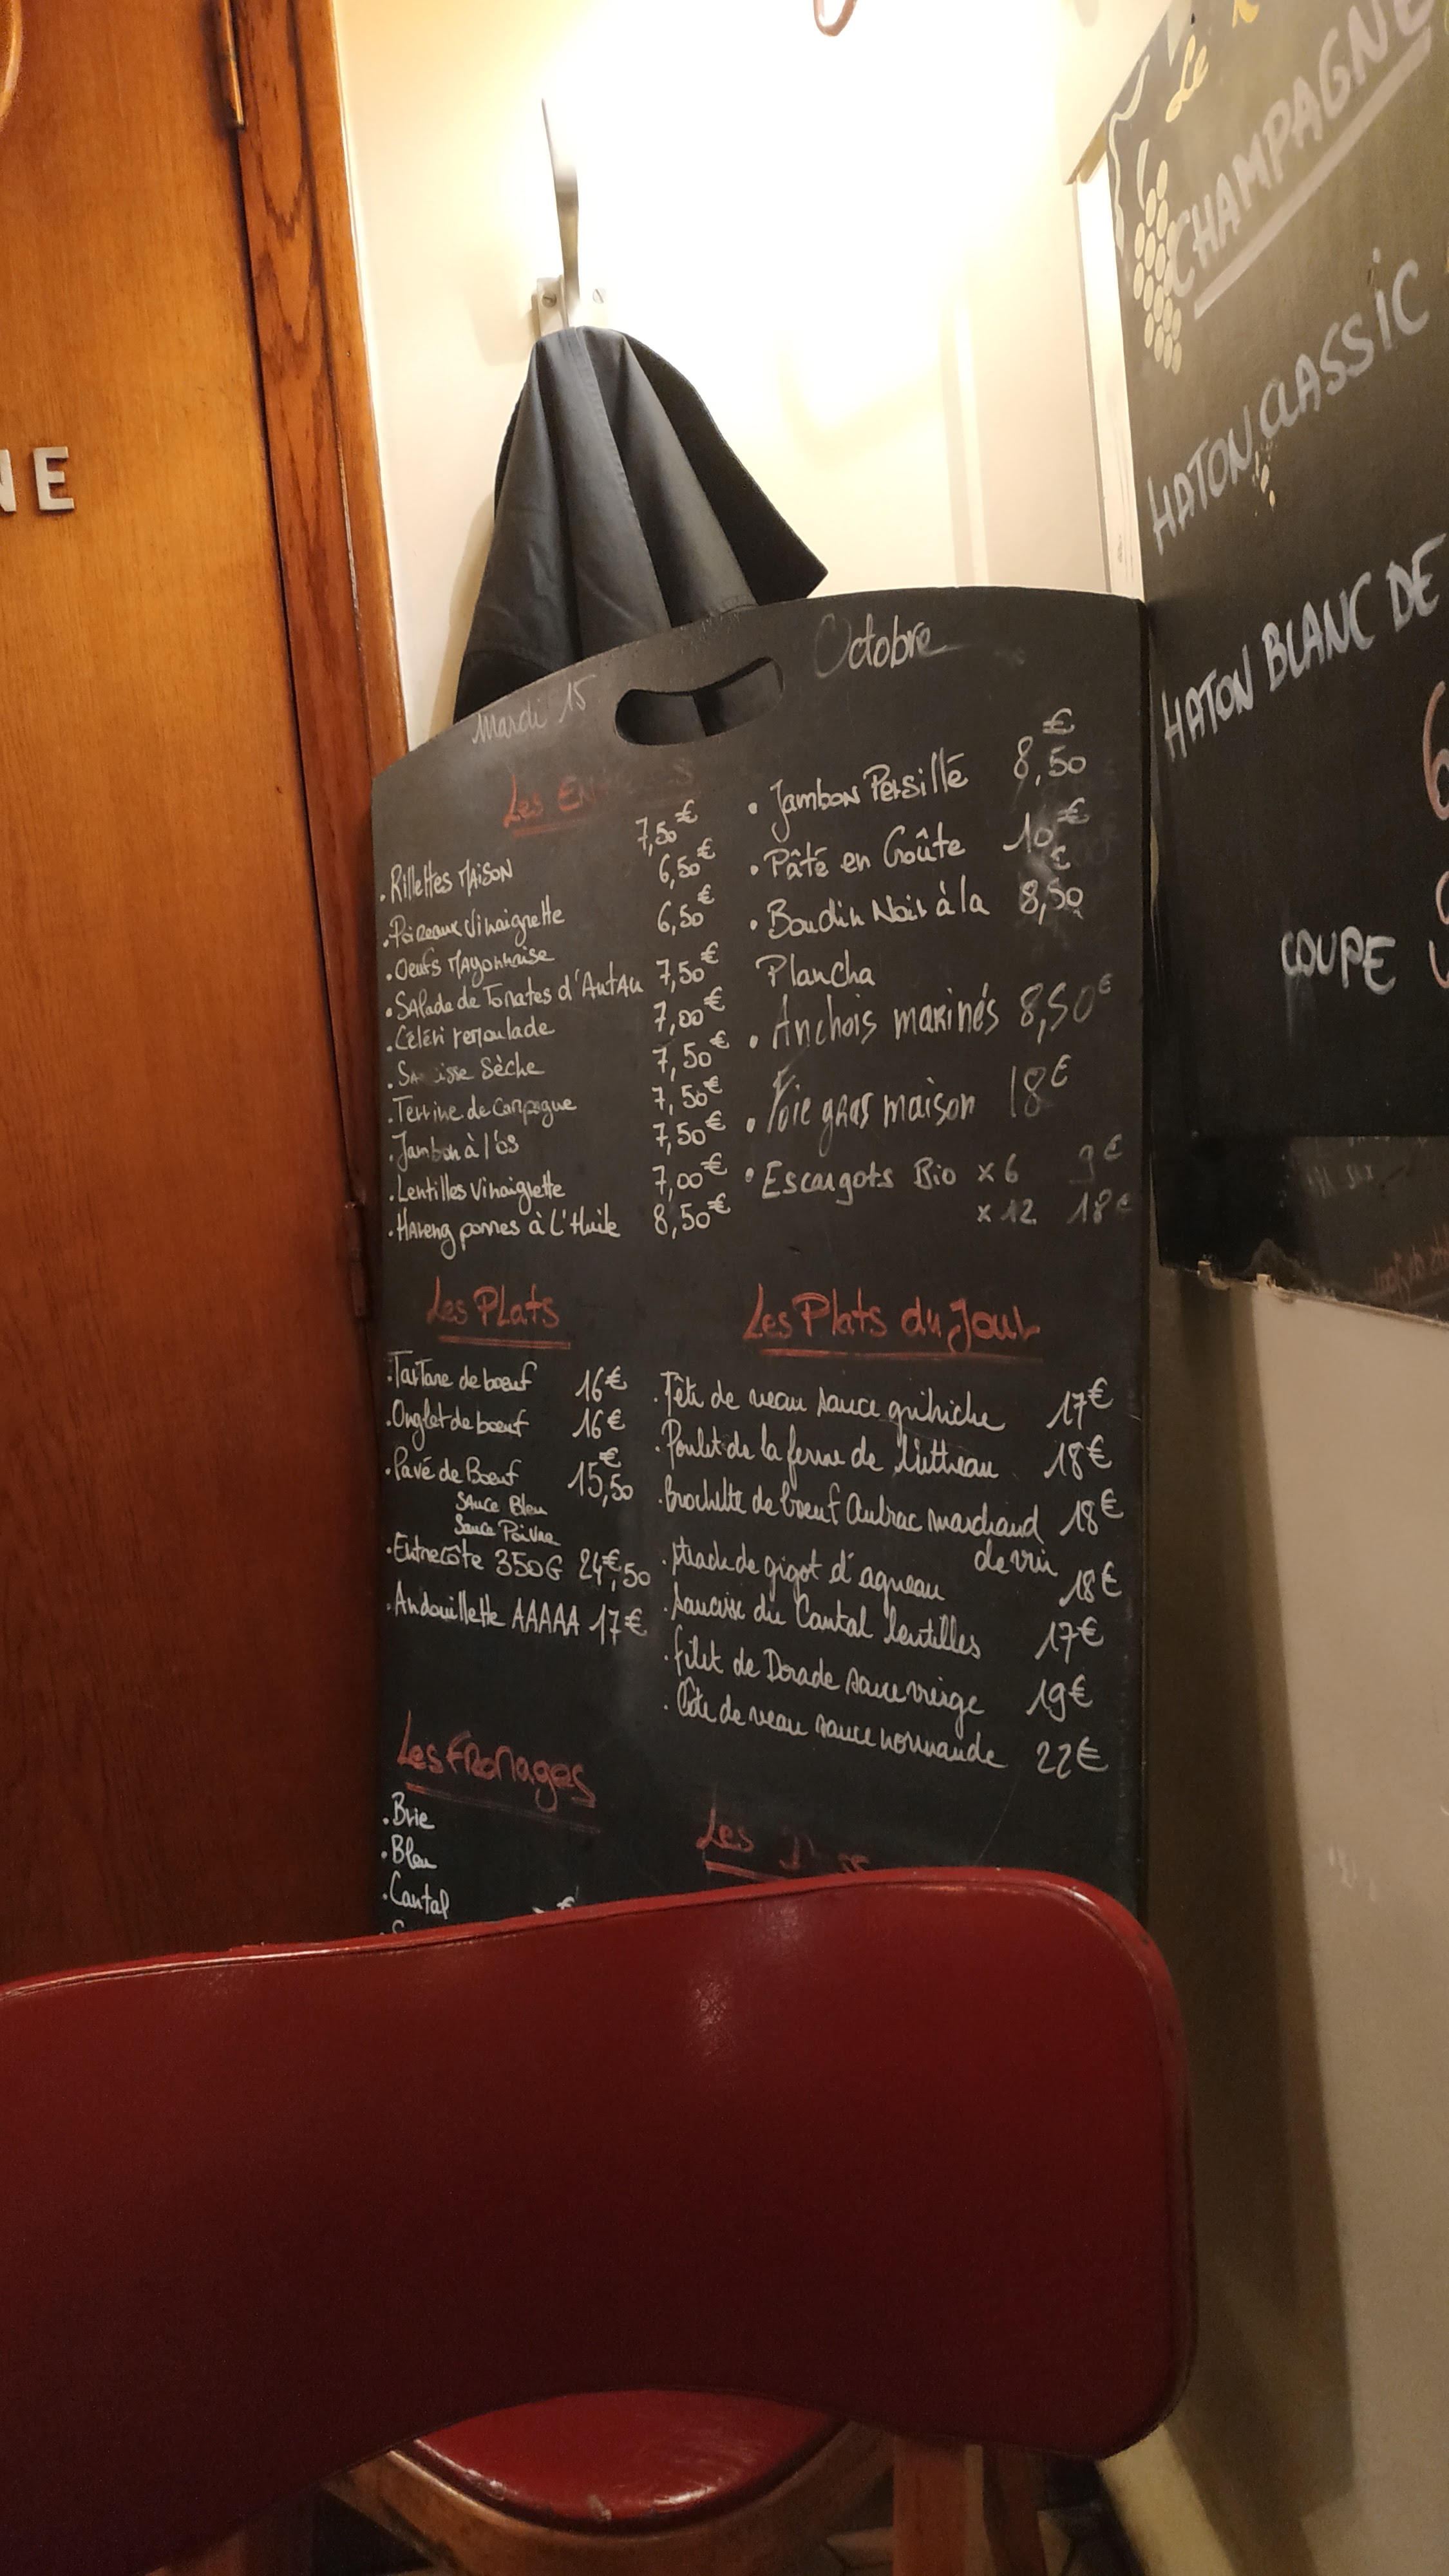 NE
Mardi 15 Octobre
Les
. Rillettes Maison 7,50€
. Poireaux Vinaigrette 6,50€
. Oeufs Mayonnaise 6,50€
. Salade de Tomates d'Antan 7,50€
. Céléri remoulade 7,00€
. Sèche 7,50€
. Terrine de Campagne 7,50€
. Jambon à l'os 7,50€
. Lentilles Vinaigrette 7,00€
. Hareng pommes à L'Huile 8,50€
• Jambon Persillé 8,50€
• Pâté en Croûte 10€
• Boudin Noir à la 8,50€
Plancha
• Anchois marinés 8,50€
• Foie gras maison 18€
• Escargots Bio x6 9€
x12 18€
Les Plats
. Tartare de boeuf 16€
. Onglet de boeuf 16€
. Pavé de Boeuf 15,50€
Sauce Bleu
Sauce Poivre
. Entrecôte 350G 24€,50
. Andouillette AAAAA 17€
Les Plats du Jour
. Tête de veau sauce gribiche 17€
. Poulet de la ferme de 18€
. Brochette de boeuf Aubrac marchand 18€
de vin
. steack de gigot d'agneau 18€
. saucisse du Cantal lentilles 17€
. filet de Dorade sauce vierge 19€
. Côte de veau sauce normande 22€
Les Fromages
. Brie
. Bleu
. Cantal
€
Les
Le
CHAMPAGNE
HATON CLASSIC
HATON BLANC DE
6
COUPE